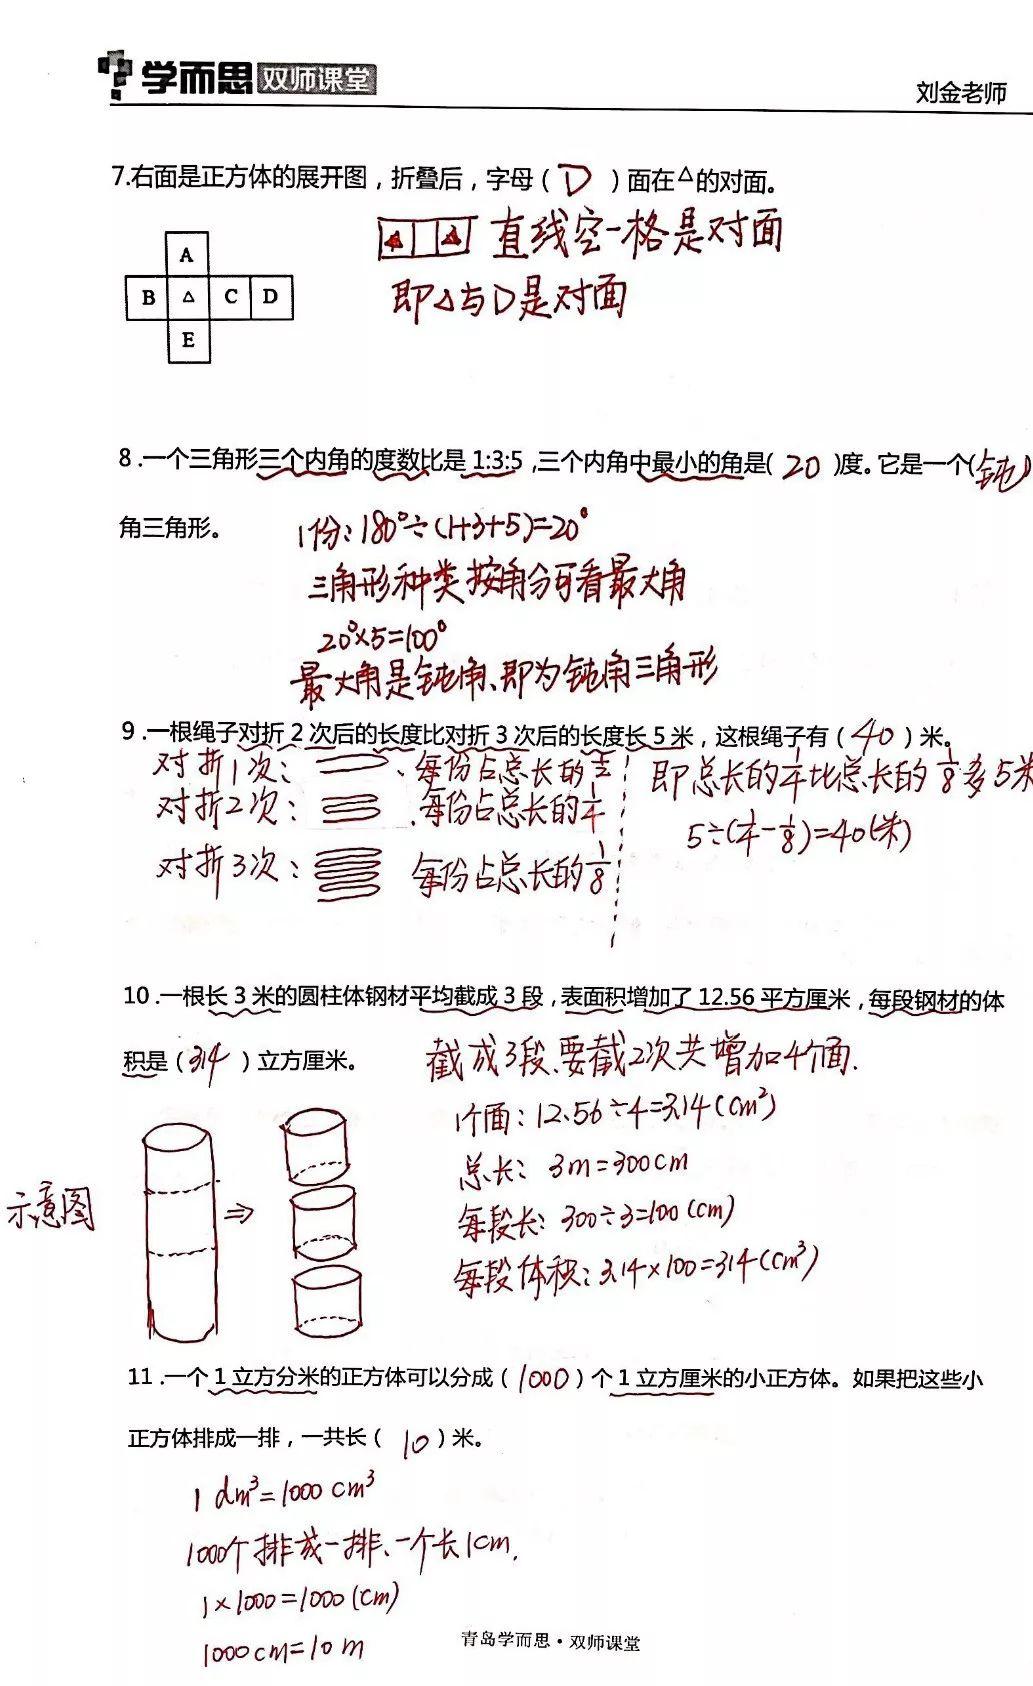 学而思 双师课堂
刘金老师
7.右面是正方体的展开图，折叠后，字母（ D ）面在△的对面。
直线空一格是对面
A
即△与D是对面
B △ C D
E
8.一个三角形三个内角的度数比是1:3:5,三个内角中最小的角是( 20 )度。它是一个(钝)
角三角形。
1份:180°÷(1+3+5)=20°
三角形种类按角分可看最大角
20°×5=100°
最大角是钝角、即为钝角三角形
9.一根绳子对折2次后的长度比对折3次后的长度长5米，这根绳子有（40）米。
对折1次: 、每份占总长的1/2
即总长的1/4比总长的1/8多5米
对折2次: .每份占总长的1/4
5÷(1/4-1/8)=40(米)
对折3次: 每份占总长的1/8
10.一根长3米的圆柱体钢材平均截成3段，表面积增加了12.56平方厘米，每段钢材的体
积是（314）立方厘米。
截成3段、要截2次共增加4个面.
1个面:12.56÷4=3.14(cm²)
总长: 3m=300cm
示意图
⇒
每段长: 300÷3=100(cm)
每段体积:3.14×100=314(cm³)
11.一个1立方分米的正方体可以分成（1000）个1立方厘米的小正方体。如果把这些小
正方体排成一排，一共长（ 10 ）米。
1dm³=1000cm³
1000个排成一排、一个长1cm.
1×1000=1000(cm)
1000cm=10m
青岛学而思·双师课堂